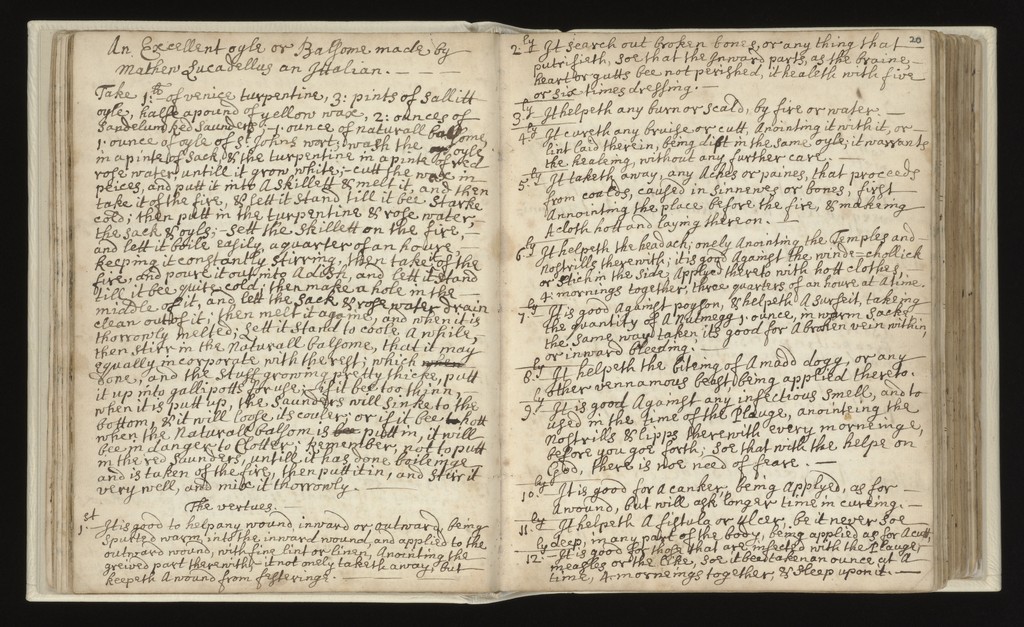 An Excellent oyle or Balsome made by
Mathew Lucadellus an Ittalian.
Take 1:th of venice turpentine, 3: pints of Sallitt
oyle, halfe a pound of yellow wax, 2: ounces of
Sandelum Red Saunders, 1: ounce of naturall balsome,
1: ounce of oyle of St: Johns wort; wash the oyle
in a pinte of Sack, & the turpentine in a pinte of red
rose water, untill it grow white; cutt the wax in
peices, and putt it into A skillett & melt it, and then
take it of the fire, & sett it stand till it bee starke
cold; then putt in the turpentine & rose water,
the sack & oyle; sett the skillett on the fire,
and lett it boile easily, a quarter of an houre
keeping it constantly stirring, then take of the
fire, and poure it out into A dish, and lett it stand
till it bee quite cold; then make a hole in the
middle of it, and lett the sack & rose water drain
clean out of it; then melt it againe, and when it is
thorrowly melted; sett it stand to coole A while,
then stirr in the Naturall balsome, that it may
equally incorporate with the rest; which when
done, and the stuff growing pretty thicke, putt
it up into galli-potts for use: if it bee too thinn,
when it is putt up, the Saunders will sinke to the
bottom, & it will loose its couler; or if it bee hott
when the Naturall balsom is bee putt in, it will
bee in danger to Clotter; Remember, not to putt
in the red Saunders, untill it has done boileinge
and is taken of the fire, then putt it in, and stirr it
very well, and mix it thorrowly.
The vertues.
1:st It is good to help any wound, inward or outward, being
Sputted warm, into the inward wound, and applied to the
outward wound, with fine lint or linen, Anointing the
greived part therewith it not onely taketh away, but
keepeth A wound from festerings.
20
2:ly It search out broken bones, or any thing that
putrifieth, soe that the inward parts, as the braine,
heart or gutts bee not perished, it healeth with five
or six times dressing.
3:ly It helpeth any burn or scald, by fire or water.
4:ly It cureth any bruise or cutt, Anointing it with it, or
lint laid therein, being dipt in the same oyle; it warrants
the healeing, without any further care.
5:ly It taketh away, any Aches or paines, that proceeds
from coalds, caused in sinnewes or bones, first
Annointing the place before the fire, & makeing
A cloth hott and laying thereon.
6:ly It helpeth the headach; onely Anointing the Temples and
Nostrills therewith; it is good Against the winde=chollick
or stich in the side, Applyed thereto with hott clothes,
4: mornings together, three quarters of an houre at A time.
7:ly It is good Against poyson, & helpeth A surfeit, takeing
the quantity of A nutmegg 1: ounce, in warm sack;
the same way taken, its good for A broken vein within,
or inward bleeding.
8:ly It helpeth the biteing of A madd dogg, or any
other vennamous beast being applied thereto.
9:ly It is good Against any infectious smell, and to
used in the time of the Plauge, anointing the
Nostrills & lipps therewith every morneinge,
before you goe forth; Soe that with the helpe on
God, there is noe need of feare.
10:ly It is good for A canker, being Applyed, as for
A wound, but will ask longer time in cureing.
11:ly It helpeth A fistula or Ulcer, be it never Soe
deep, in any part of the body, being applied as for A cutt,
12:ly It is good for those that are infected with the Plauge,
measles or the like, soe it bee taken an ounce at A
time, 4: mornemgs together, & sleep upon it.